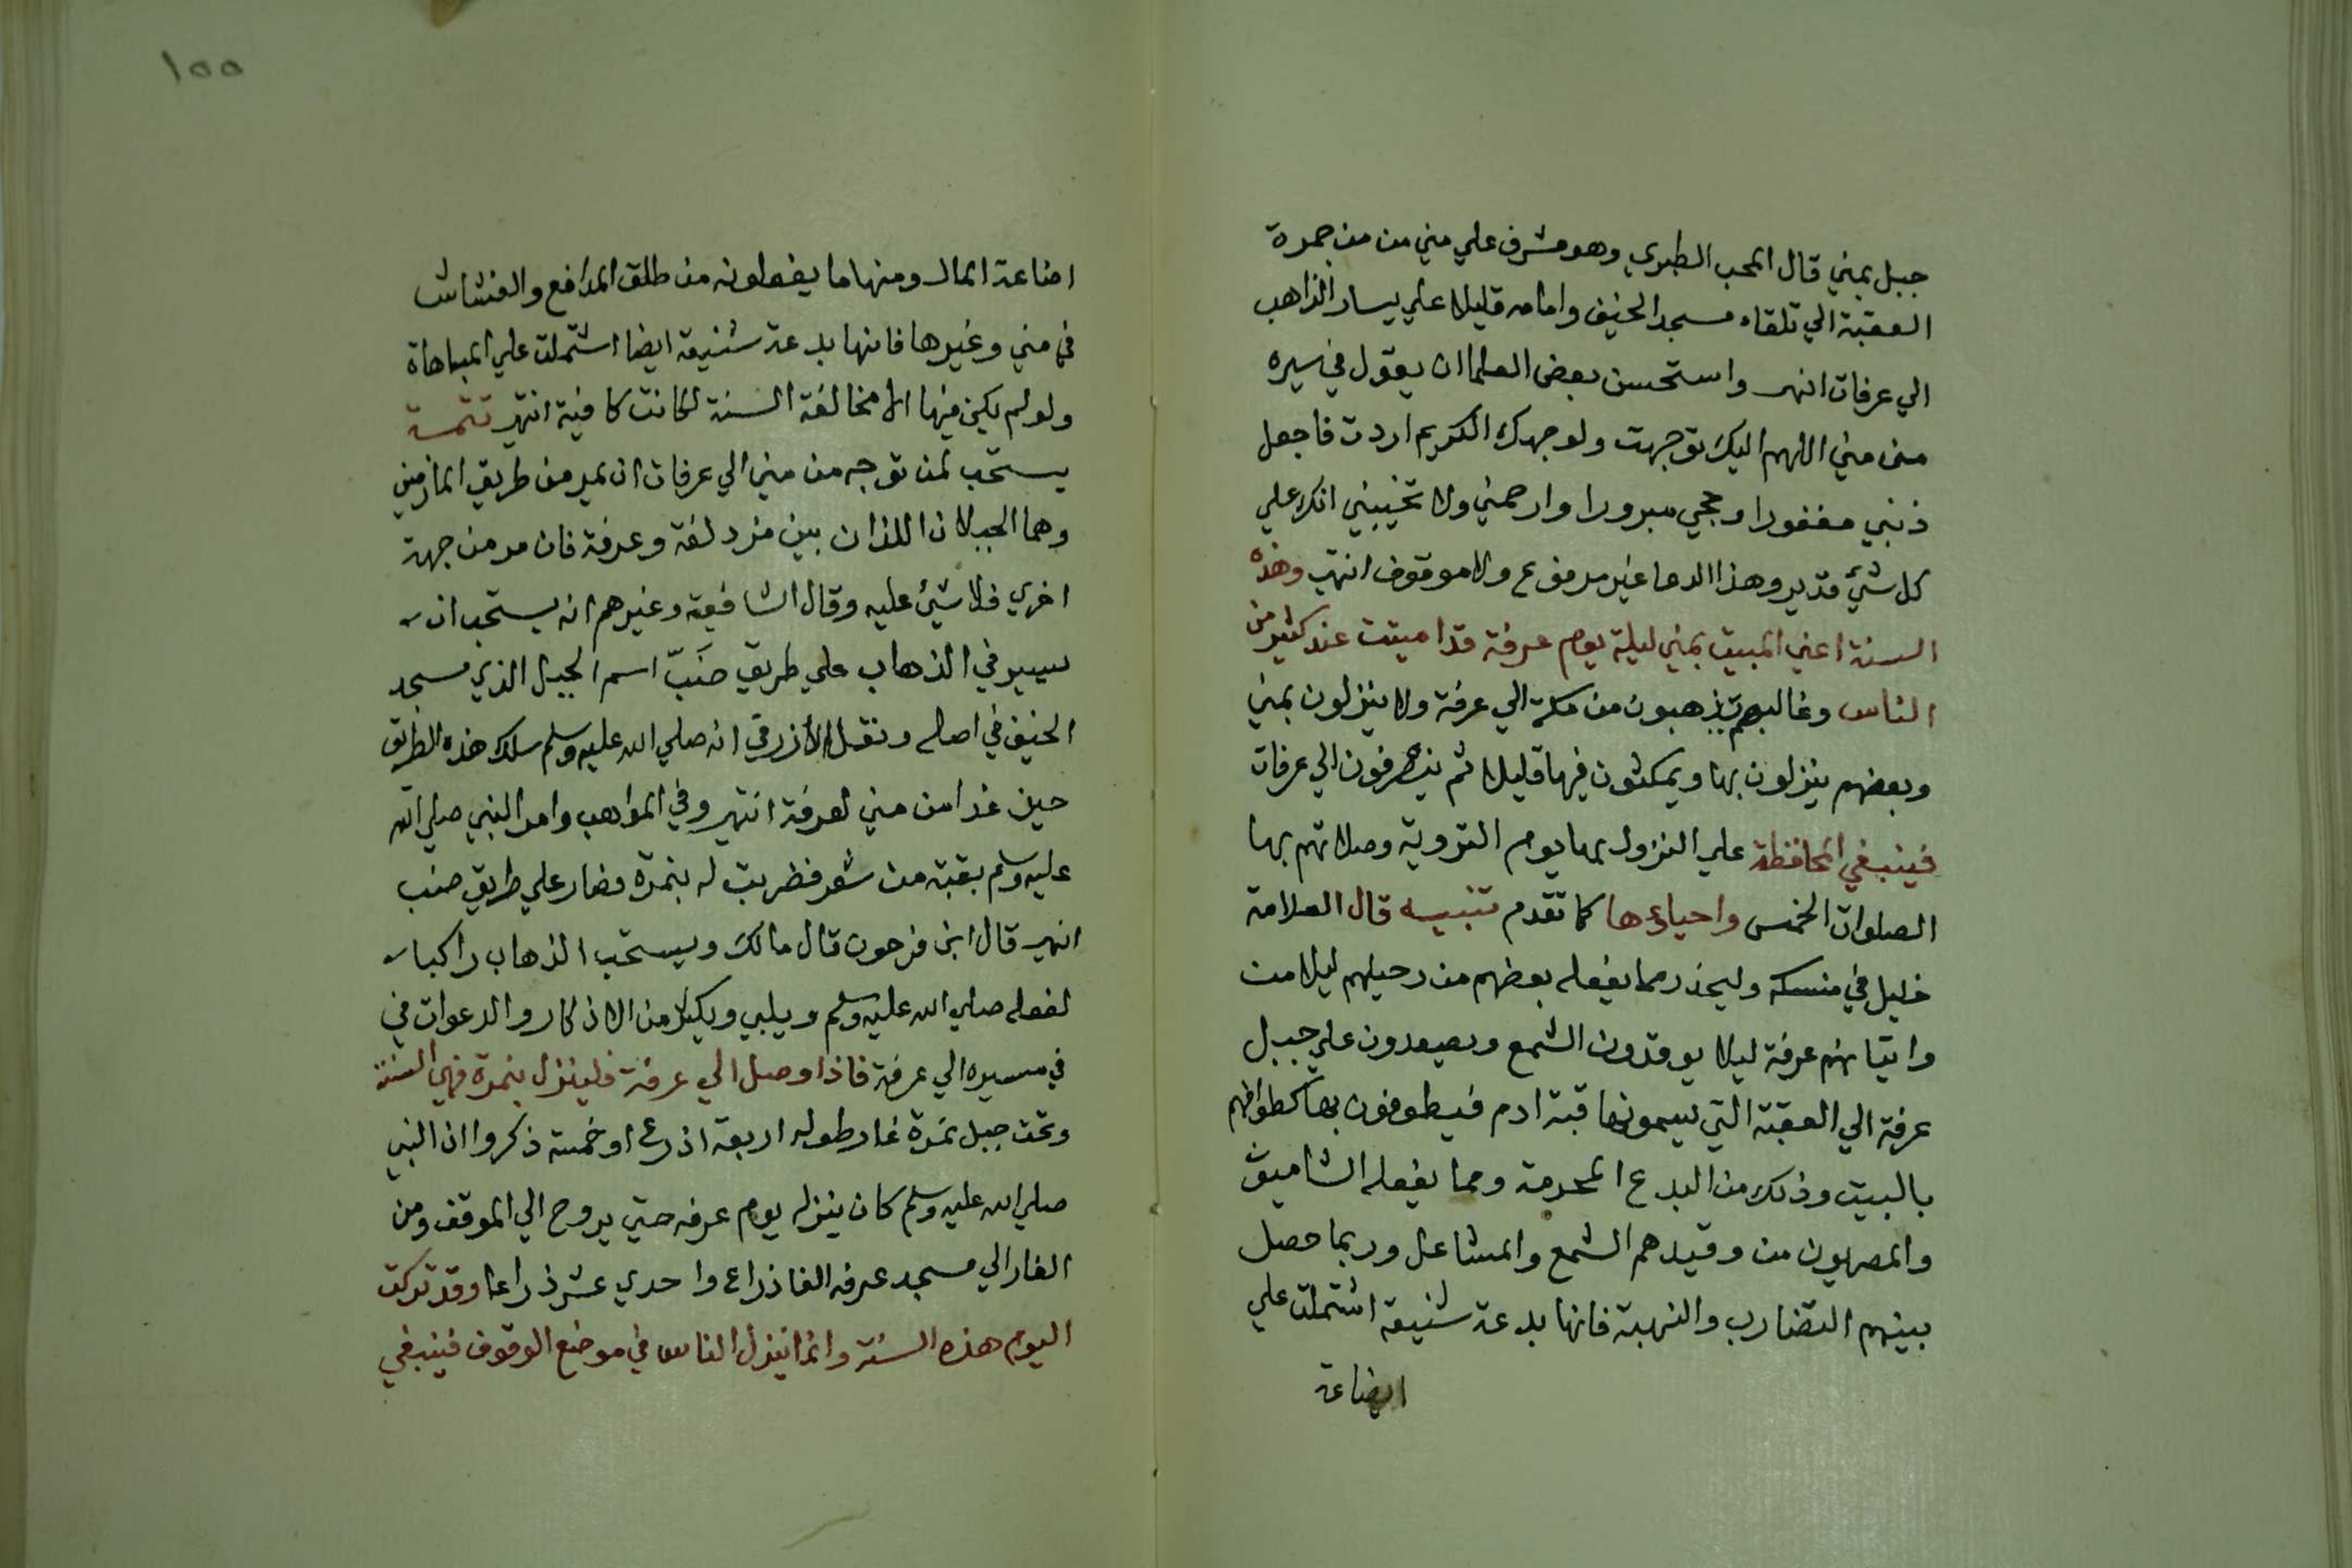 جبل بمني قال المحب الطبري وهو مشرف علي مني من من جمرة
العقبة الي تلقاء مسجد الخيف وامامه قليلا علي يسار الذاهب
الي عرفات انهى واستحسن بعض العلما ان يقول في سيره
من مني اللهم اليك توجهت ولوجهك الكريم اردت فاجعل
ذنبي مغفورا وحجي مبرورا وارحمني ولا تخيبني انك علي
كل شيء قدير وهذا الدعا غير مرفوع ولا موقوف انتهى وهذه
السنة اعني المبيت بمني ليلة يوم عرفة قد اميتت عند كثير من
الناس وغالبهم يذهبون من مكة الي عرفة ولا ينزلون بمني
وبعضهم ينزلون بها ويمكثون فيها قليلا ثم ينصرفون الي عرفات
فينبغي المحافظة علي النزول بها يوم التروية وصلاتهم بها
الصلوات الخمس واحياءها كما تقدم تنبيه قال العلامة
خليل في منسكه وليحذر مما يفعله بعضهم من رحيلهم ليلا من
واتيانهم عرفة ليلا يوقدون الشمع ويصعدون علي جبل
عرفة الي العقبة التي يسمونها قبة ادم فيطوفون بها كطوافهم
بالبيت وذلك من البدع المحرمة ومما يفعله الشاميون
والمصريون من وقيدهم الشمع والمشاعل وربما حصل
بينهم التضارب والنهبة فانها بدعة شنيعة اشتملت علي
اضاعة
١٥٥
اضاعة المال ومنها ما يفعلونه من طلق المدافع والفشاش
في مني وغيرها فانها بدعة شنيعة ايضا اشتملت علي المباهاة
ولو لم يكن فيها الا مخالفة السنة لكانت كافية انتهى تتمة
يستحب لمن توجه من مني الي عرفات ان يمر من طريق المازمين
وهما الجبلان اللذان بين مزدلفة وعرفة فان مر من جهة
اخري فلا شيء عليه وقال الشافعية وغيرهم انه يستحب ان
يسير في الذهاب علي طريق ضَبّ اسم الجبل الذي مسجد
الخيف في اصله ونقل الأزرقي انه صلي الله عليه وسلم سلك هذه الطريق
حين غدا من مني لعرفة انتهى وفي المواهب وامر النبي صلي الله
عليه وسلم بقبة من شعر فضربت له بنمرة فصار علي طريق ضب
انهى قال ابن فرحون قال مالك ويستحب الذهاب راكبا
لفعله صلي الله عليه وسلم ويلبي ويكثر من الاذكار والدعوات في
في مسيره الي عرفة فاذا وصل الي عرفة فلينزل بنمرة فهي السنة
وتحت جبل نمرة غار طوله اربعة اذرع او خمسة ذكروا ان النبي
صلي الله عليه وسلم كان ينزله يوم عرفه حتي يروح الي الموقف ومن
الغار الي مسجد عرفه الفا ذراع واحدي عشر ذراعا وقد تركت
اليوم هذه السنة وانما ينزل الناس في موضع الوقوف فينبغي